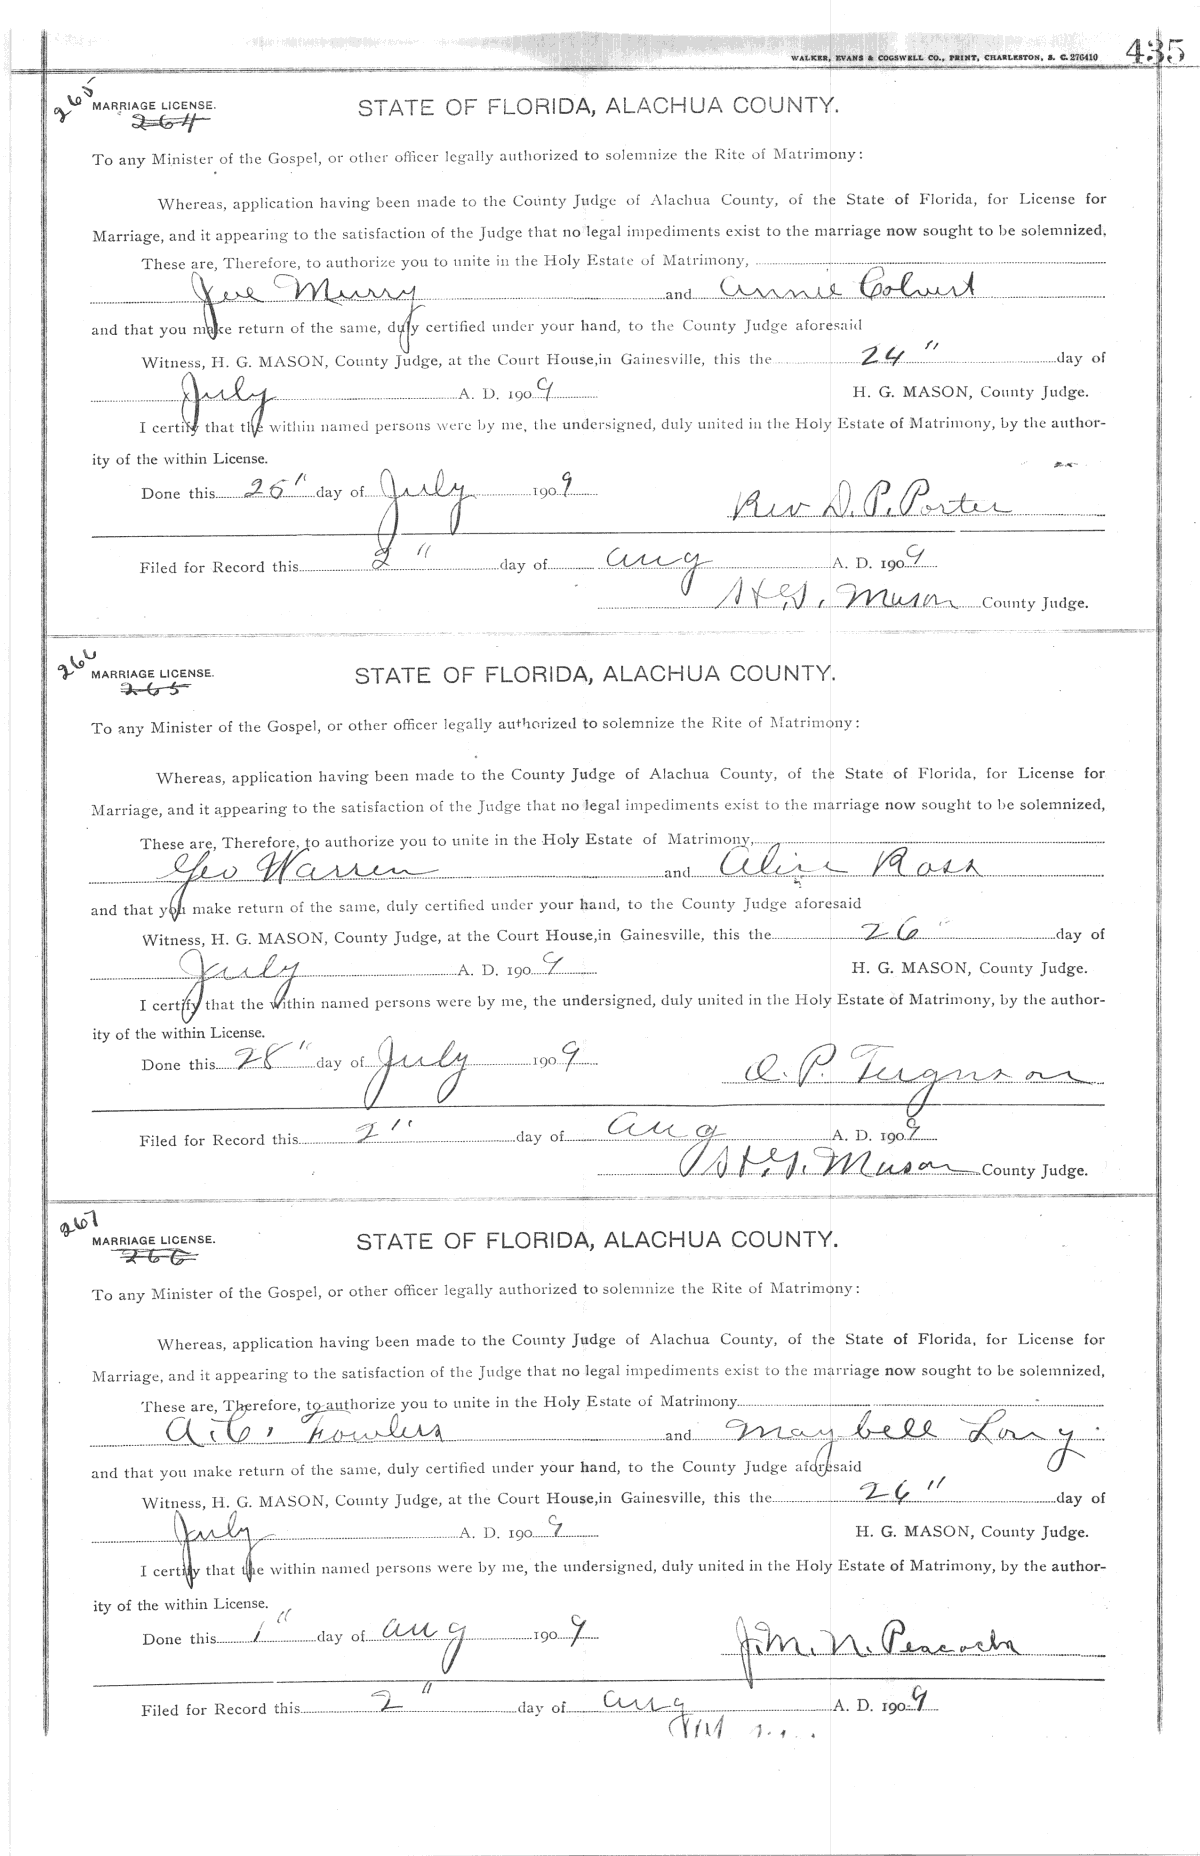 WALKER, EVANS & COGSWELL CO., PRINT, CHARLESTON, S. C. 276410 435
265
MARRIAGE LICENSE. STATE OF FLORIDA, ALACHUA COUNTY.
264
To any Minister of the Gospel, or other officer legally authorized to solemnize the Rite of Matrimony:
Whereas, application having been made to the County Judge of Alachua County, of the State of Florida, for License for
Marriage, and it appearing to the satisfaction of the Judge that no legal impediments exist to the marriage now sought to be solemnized,
These are, Therefore, to authorize you to unite in the Holy Estate of Matrimony,
Joe Murry and Annie Colvert
and that you make return of the same, duly certified under your hand, to the County Judge aforesaid
Witness, H. G. MASON, County Judge, at the Court House, in Gainesville, this the 24" day of
July A. D. 1909 H. G. MASON, County Judge.
I certify that the within named persons were by me, the undersigned, duly united in the Holy Estate of Matrimony, by the author-
ity of the within License.
Done this 25" day of July 1909
Rev D. P. Porter
Filed for Record this 2" day of Aug A. D. 1909
H. G. Mason County Judge.
266
MARRIAGE LICENSE. STATE OF FLORIDA, ALACHUA COUNTY.
265
To any Minister of the Gospel, or other officer legally authorized to solemnize the Rite of Matrimony:
Whereas, application having been made to the County Judge of Alachua County, of the State of Florida, for License for
Marriage, and it appearing to the satisfaction of the Judge that no legal impediments exist to the marriage now sought to be solemnized,
These are, Therefore, to authorize you to unite in the Holy Estate of Matrimony,
Geo Warren and Aline Ross
and that you make return of the same, duly certified under your hand, to the County Judge aforesaid
Witness, H. G. MASON, County Judge, at the Court House, in Gainesville, this the 26" day of
July A. D. 1909 H. G. MASON, County Judge.
I certify that the within named persons were by me, the undersigned, duly united in the Holy Estate of Matrimony, by the author-
ity of the within License.
Done this 28" day of July 1909
O. P. Ferguson
Filed for Record this 2" day of Aug A. D. 1909
H. G. Mason County Judge.
267
MARRIAGE LICENSE. STATE OF FLORIDA, ALACHUA COUNTY.
266
To any Minister of the Gospel, or other officer legally authorized to solemnize the Rite of Matrimony:
Whereas, application having been made to the County Judge of Alachua County, of the State of Florida, for License for
Marriage, and it appearing to the satisfaction of the Judge that no legal impediments exist to the marriage now sought to be solemnized,
These are, Therefore, to authorize you to unite in the Holy Estate of Matrimony
A. C. Fowlers and May bell Long
and that you make return of the same, duly certified under your hand, to the County Judge aforesaid
Witness, H. G. MASON, County Judge, at the Court House, in Gainesville, this the 26" day of
July A. D. 1909 H. G. MASON, County Judge.
I certify that the within named persons were by me, the undersigned, duly united in the Holy Estate of Matrimony, by the author-
ity of the within License.
Done this 1" day of Aug 1909
J. M. N. Peacock
Filed for Record this 2" day of Aug A. D. 1909